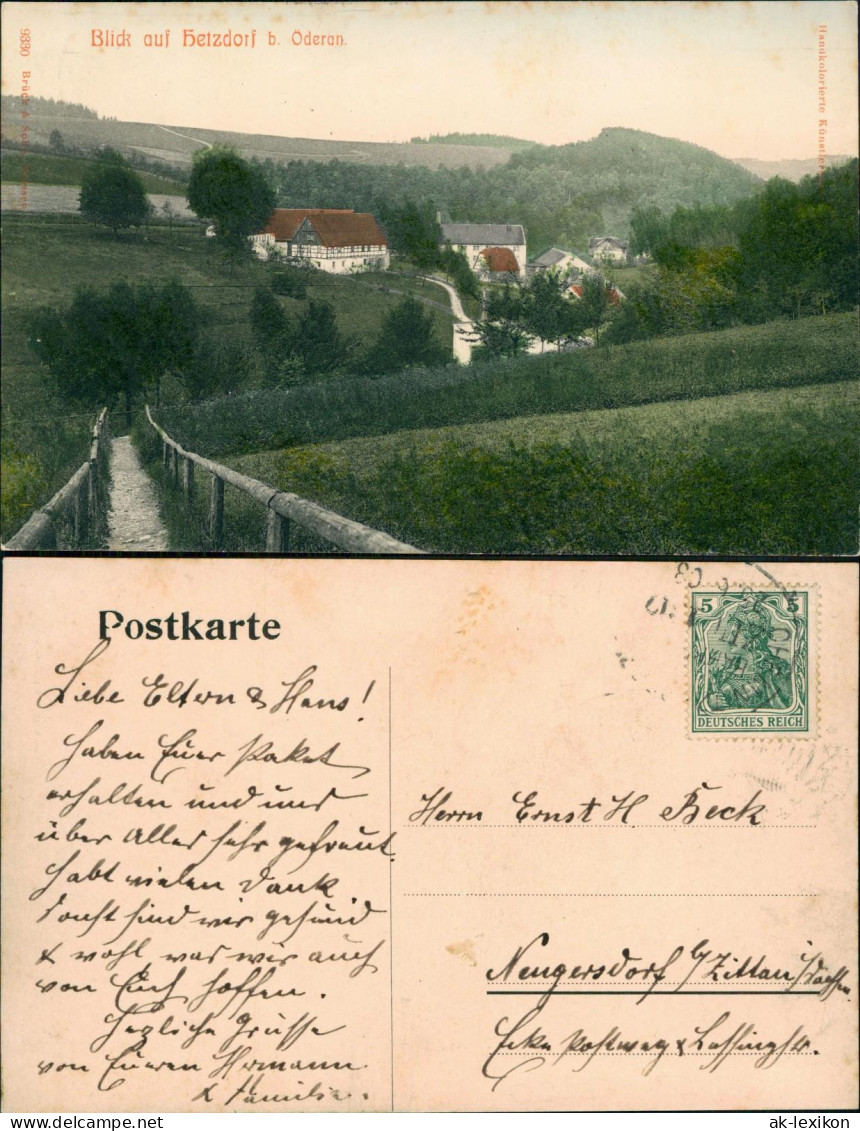 Blick auf Hetzdorf b. Öderan.
Handkolorierte Künstler
9330 Brück &
Postkarte
5 5
DEUTSCHES REICH
Liebe Eltern & Hans!
Haben Euer Paket
erhalten und uns
über Alles sehr gefreut.
Habt vielen Dank
sonst sind wir gesund
& wohl was wir auch
von Euch hoffen.
Herzliche Grüsse
von Eueren Hermann
& Familie.
Herrn Ernst H Beck
Neugersdorf b/Zittau i/Sachsen
Ecke Postweg & Lessingstr.
ak-lexikon